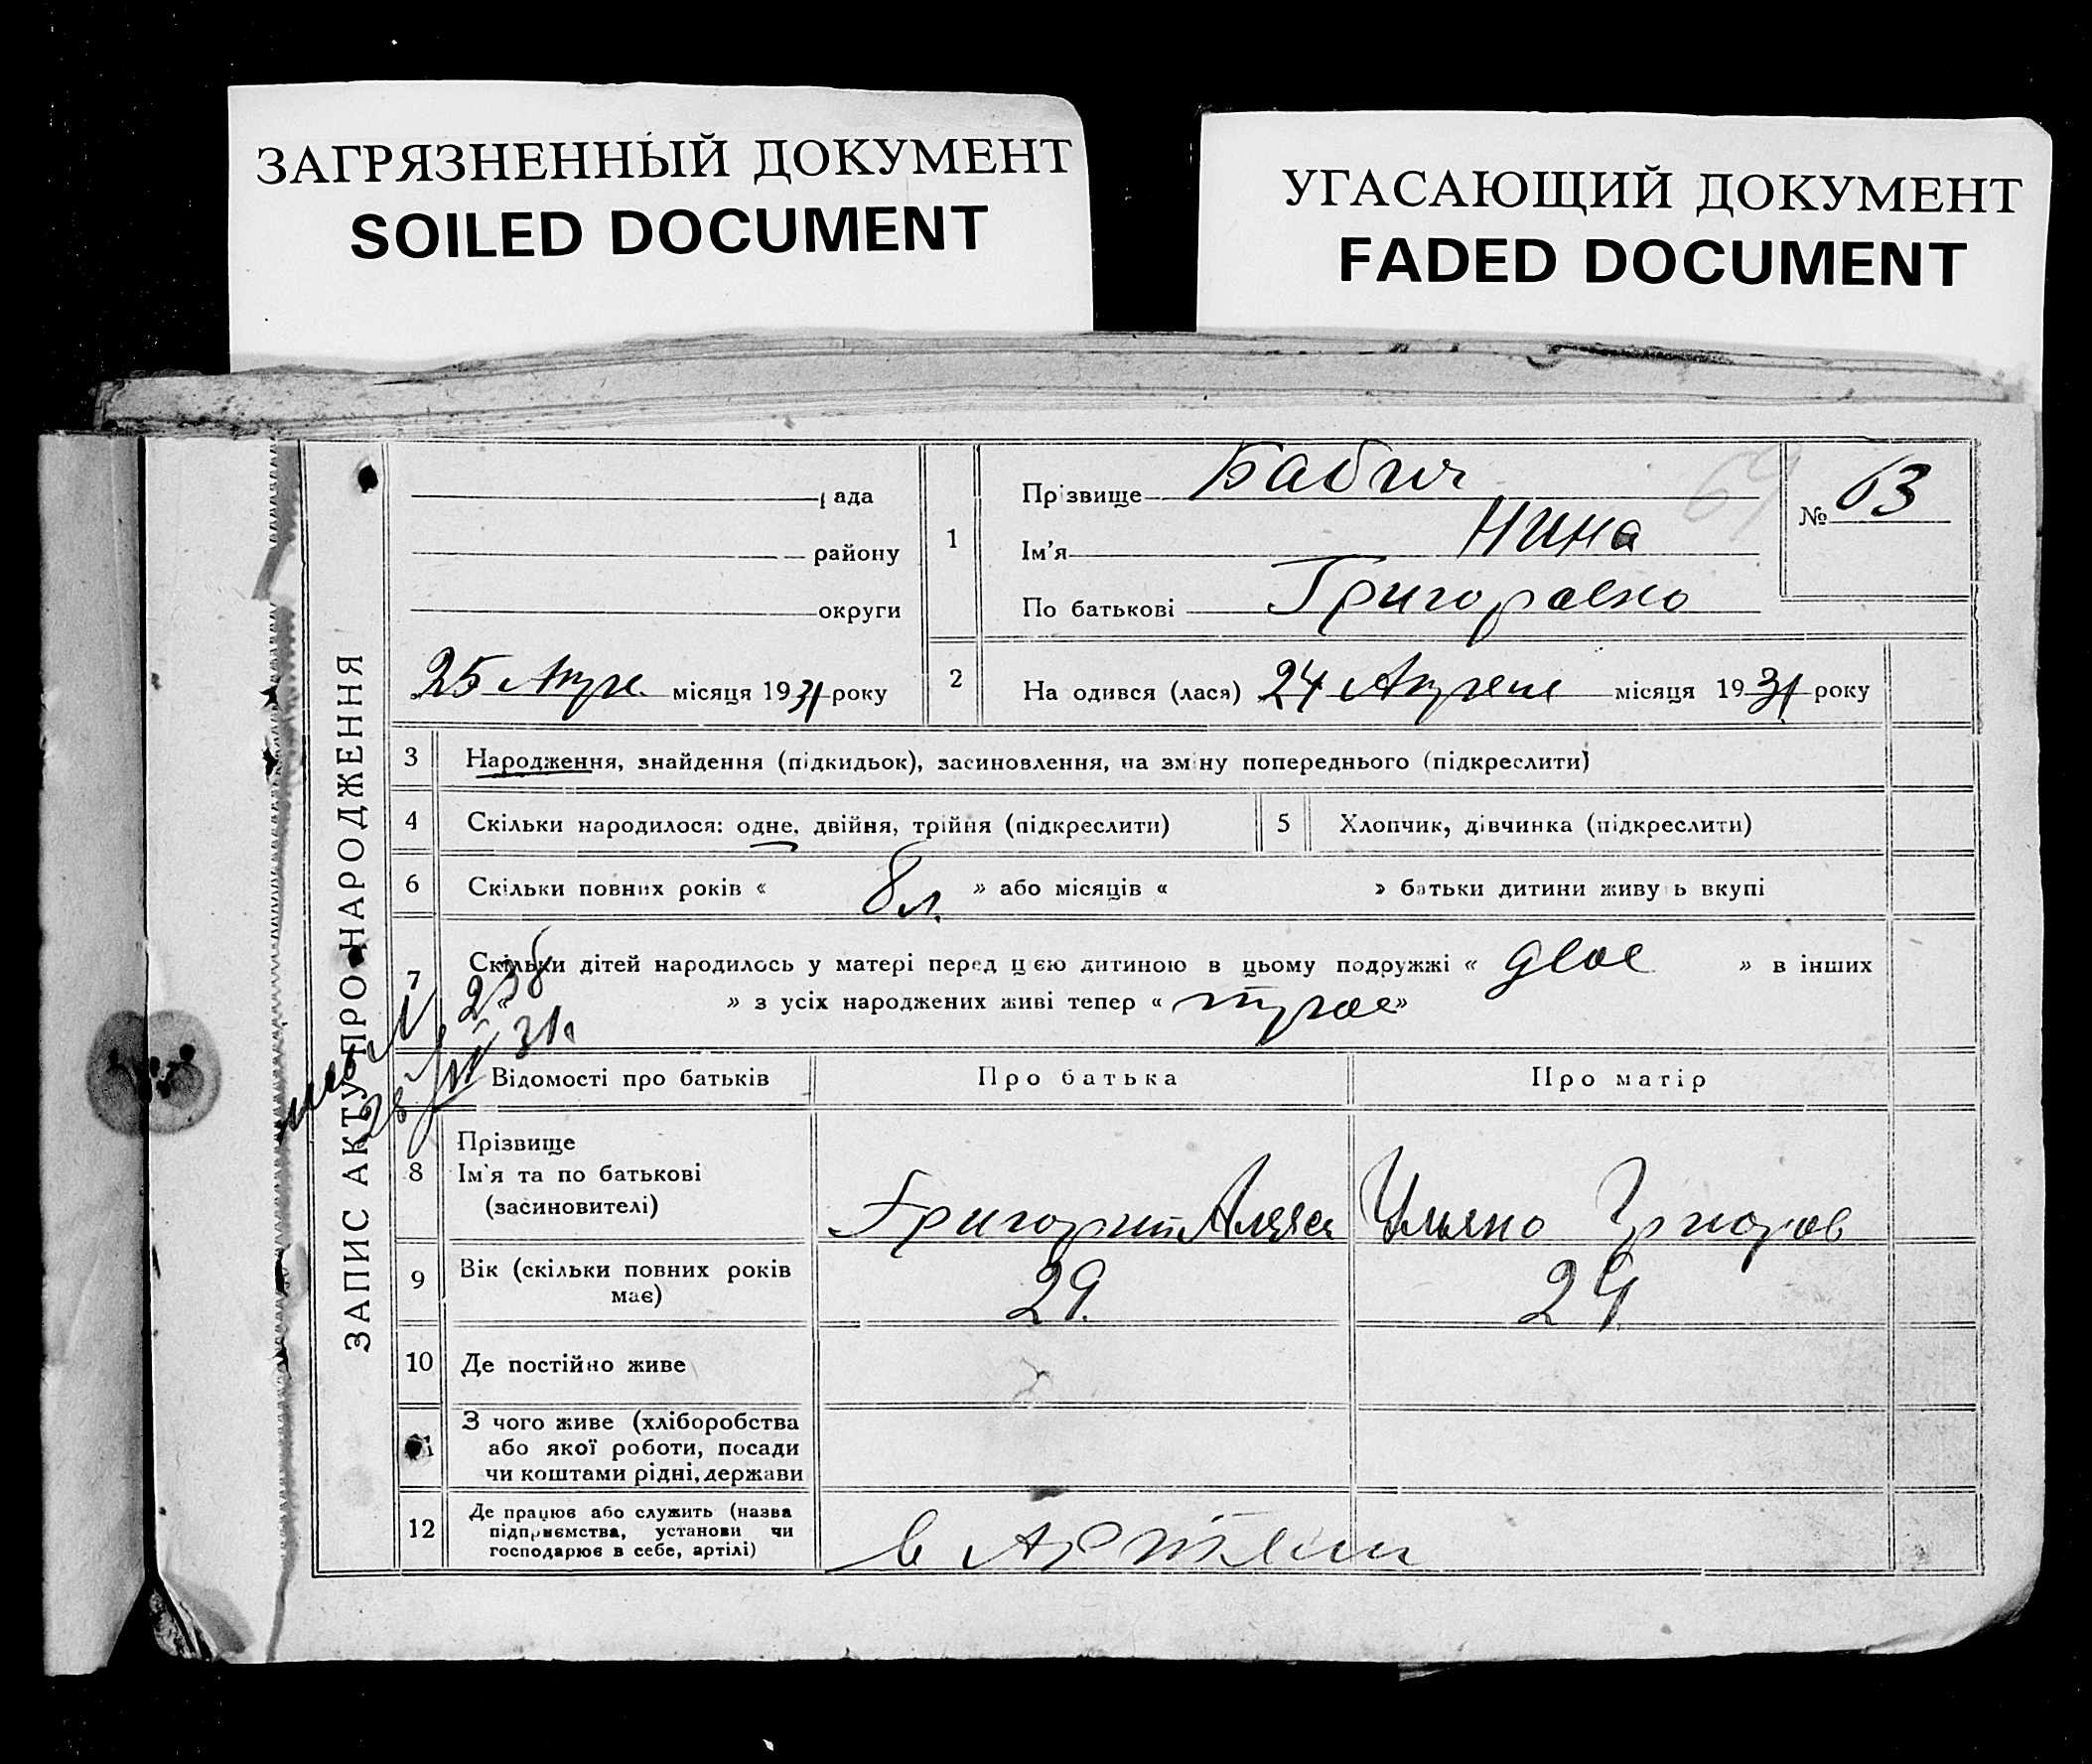 ЗАГРЯЗНЕННЫЙ ДОКУМЕНТ
SOILED DOCUMENT
УГАСАЮЩИЙ ДОКУМЕНТ
FADED DOCUMENT
ЗАПИС АКТУ ПРО НАРОДЖЕННЯ
рада
району
округи
25 Апре. місяця 1931 року
1
Прізвище Бабич
Ім'я Нина
По батькові Григоровно
69
№ 63
2 На одився (лася) 24 Апреля місяця 1931 року
3 Народження, знайдення (підкидьок), засиновлення, на зміну попереднього (підкреслити)
4 Скільки народилося: одне, двійня, трійня (підкреслити)
5 Хлопчик, дівчинка (підкреслити)
6 Скільки повних років « 8 л. » або місяців « » батьки дитини живуть вкупі
7 Скільки дітей народилось у матері перед цією дитиною в цьому подружжі « двое » в інших
« » з усіх народжених живі тепер « трое »
31.
Відомості про батьків Про батька Про матір
8 Прізвище
Ім'я та по батькові
(засиновителі)
Григорий Ульяно Григоров
9 Вік (скільки повних років
має)
29. 29
10 Де постійно живе
11 З чого живе (хліборобства
або якої роботи, посади
чи коштами рідні, держави
12 Де працює або служить (назва
підприємства, установи чи
господарює в себе, артілі)
в Артели